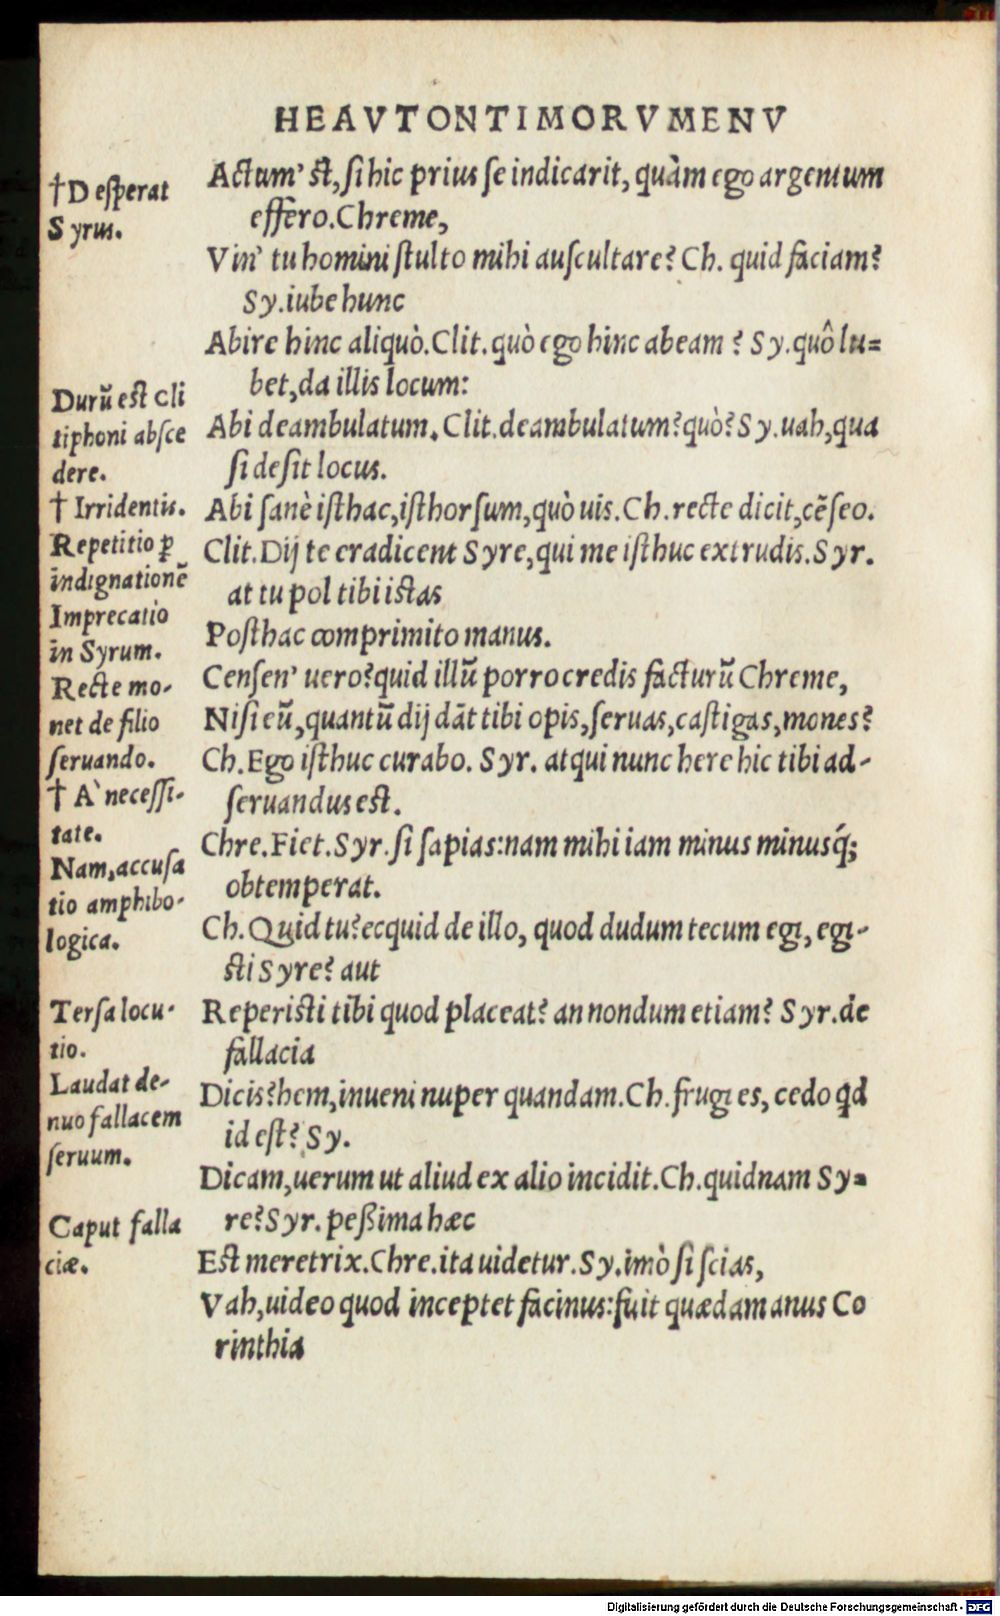 HEAVTONTIMORVMENV
Actum' st, si hic prius se indicarit, quàm ego argentum
effero. Chreme,
Vin' tu homini stulto mihi auscultare? Ch. quid faciam?
Sy. iube hunc
Abire hinc aliquò. Clit. quò ego hinc abeam? Sy. quô lu=
bet, da illis locum:
Abi deambulatum. Clit. deambulatum? quò? Sy. uah, qua
si desit locus.
Abi sanè isthac, isthorsum, quò uis. Ch. recte dicit, cēseo.
Clit. Dij te eradicent Syre, qui me isthuc extrudis. Syr.
at tu pol tibi istas
Posthac comprimito manus.
Censen' uero? quid illũ porro credis facturũ Chreme,
Nisi eũ, quantũ dij dāt tibi opis, seruas, castigas, mones?
Ch. Ego isthuc curabo. Syr. atqui nunc here hic tibi ad-
seruandus est.
Chre. Fiet. Syr. si sapias: nam mihi iam minus minusq́;
obtemperat.
Ch. Quid tu? ecquid de illo, quod dudum tecum egi, egi-
sti Syre? aut
Reperisti tibi quod placeat? an nondum etiam? Syr. de
fallacia
Dicis? hem, inueni nuper quandam. Ch. frugi es, cedo qd
id est? Sy.
Dicam, uerum ut aliud ex alio incidit. Ch. quidnam Sy=
re? Syr. peßima hæc
Est meretrix. Chre. ita uidetur. Sy. imò si scias,
Vah, uideo quod inceptet facinus: fuit quædam anus Co
rinthia
†Desperat
Syrus.
Durũ est Cli
tiphoni absce
dere.
† Irridentis.
Repetitio ꝑ
indignationē
Imprecatio
in Syrum.
Recte mo-
net de filio
seruando.
† À necessi-
tate.
Nam, accusa
tio amphibo-
logica.
Tersa locu-
tio.
Laudat de-
nuo fallacem
seruum.
Caput falla
ciæ.
Digitalisierung gefördert durch die Deutsche Forschungsgemeinschaft - DFG